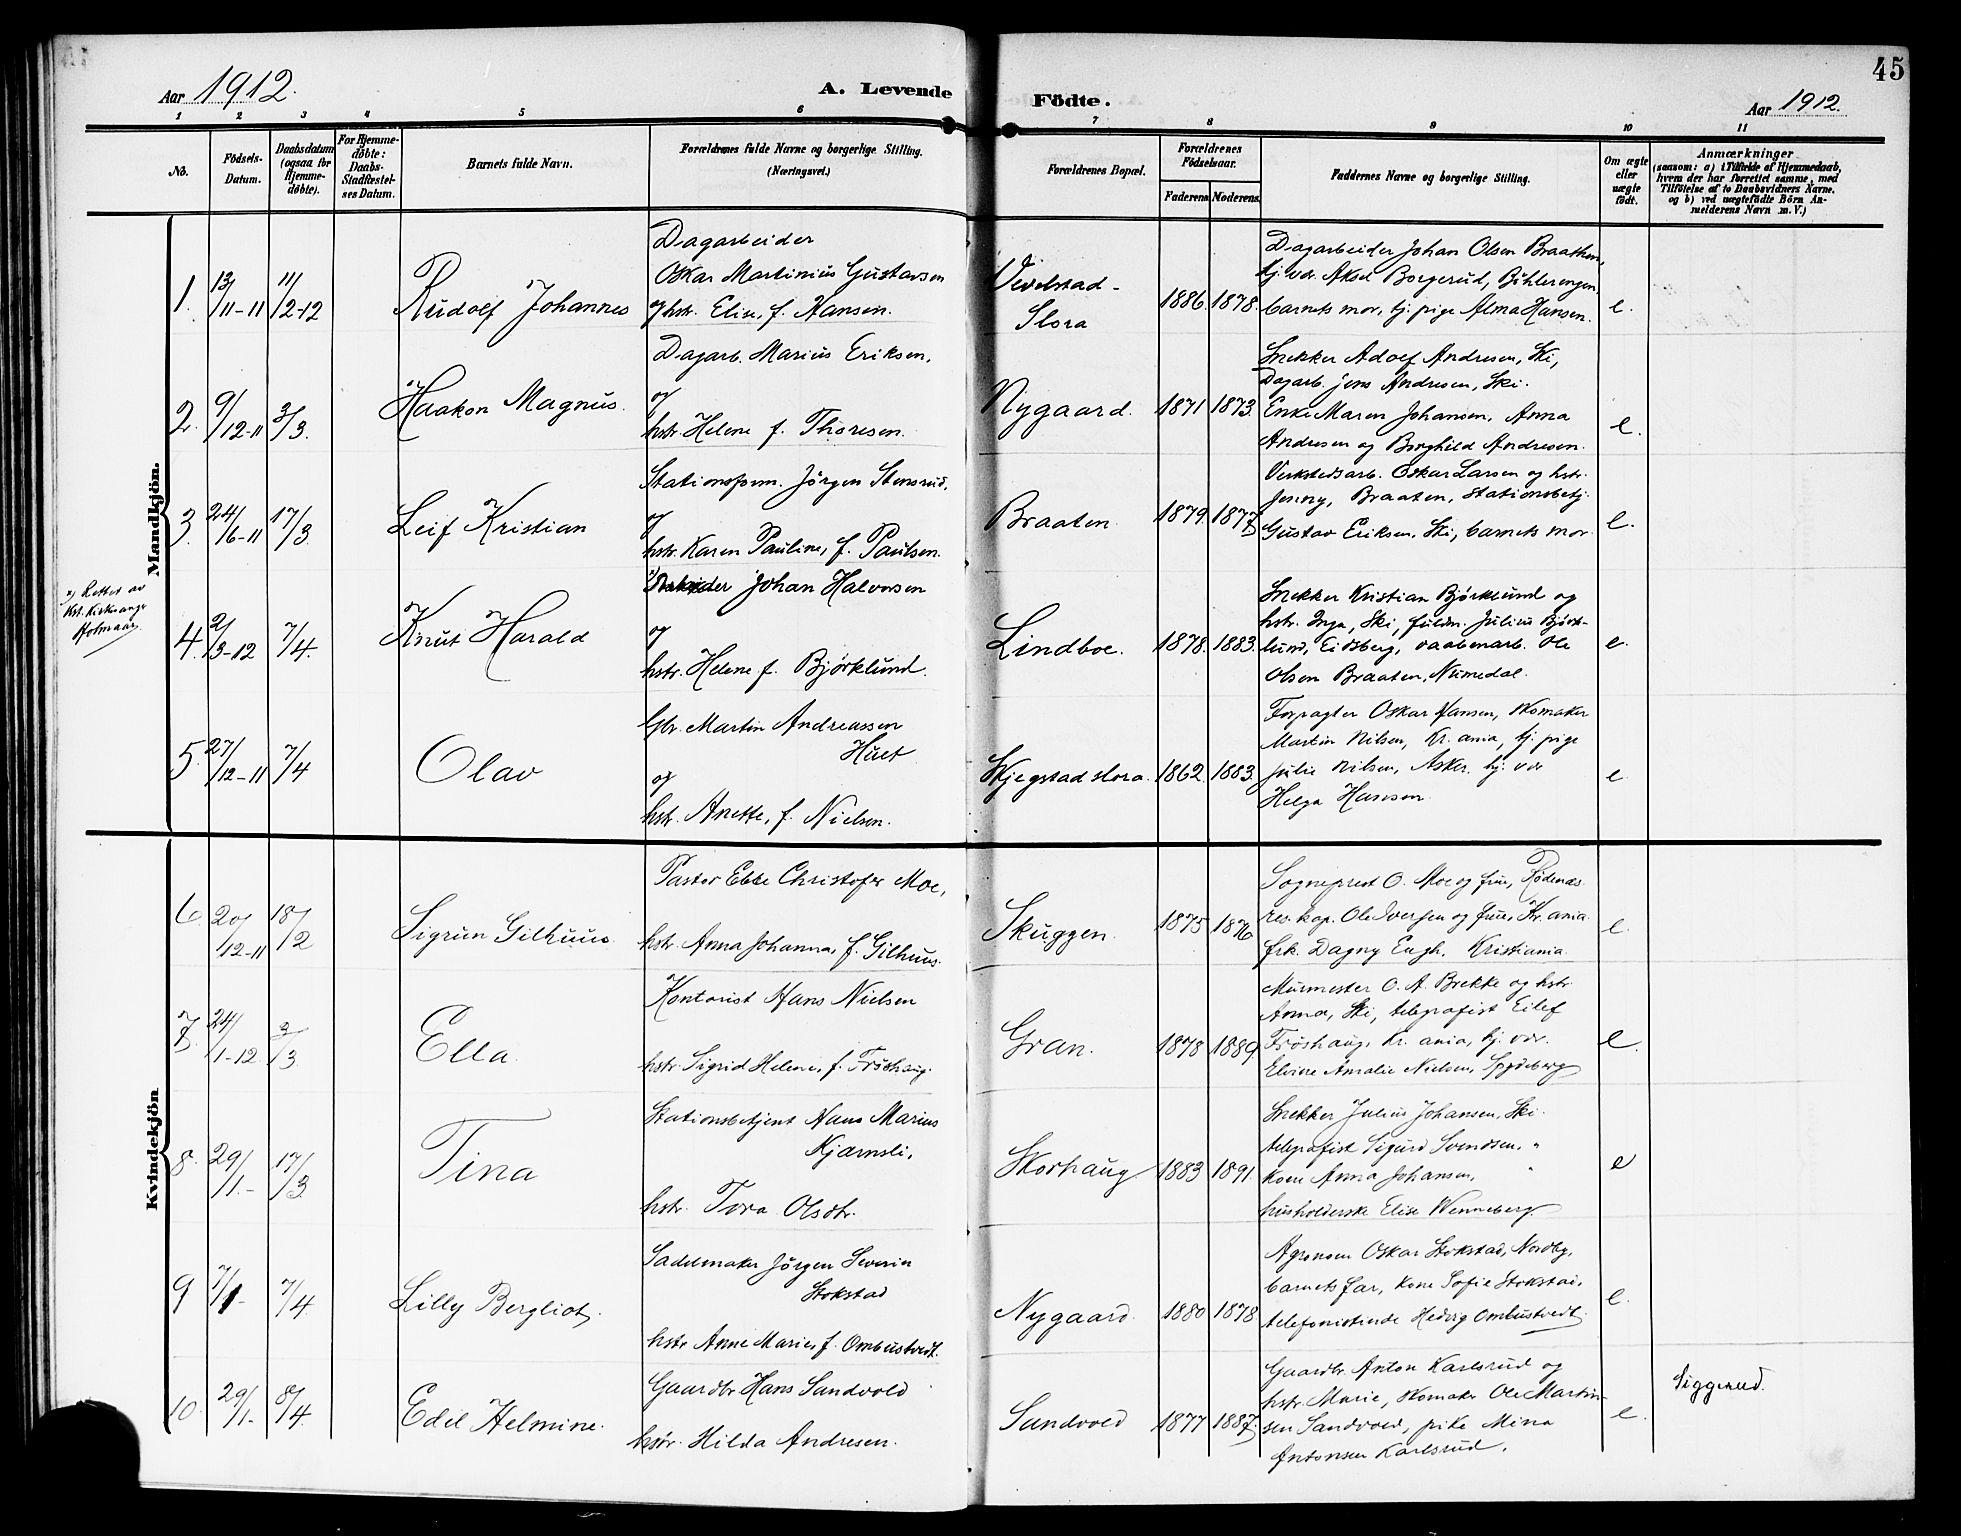 45
Aar 1912.
A. Levende
Födte.
Aar 1912.
1 2 3 4 5 6 7 8 9 10 11
No.
Födsels-
Datum.
Daabsdatum
(ogsaa for
Hjemme-
döbte).
For Hjemme-
döbte:
Daabs-
Stadfæstel-
ses Datum.
Barnets fulde Navn.
Forældrenes fulde Navne og borgerlige Stilling.
(Næringsvei.)
Forældrenes Bopæl.
Forældrenes
Födselsaar.
Faderens Moderens.
Faddernes Navne og borgerlige Stilling.
Om ægte
eller
uægte
födt.
Anmærkninger
(saasom: a) i Tilfælde af Hjemmedaab,
hvem der har forrettet samme, med
Tilföielse af to Daabsvidners Navne.
og b) ved uægtefödte Börn An-
melderens Navn m. V.)
Mandkjön.
1. 13/11-11 11/2-12
Rudolf Johannes
Dagarbeider
Oskar Martinius Gustavsen
og hstr. Elise, f. Hansen.
Vevelstad-
Slora
1886. 1878.
Dagarbeider Johan Olsen Braathen,
tj. vdr. Aksel Borgerud, Bøhlerengen,
barnets mor, tj. pige Alma Hansen.
e.
2. 9/12-11 3/3.
Haakon Magnus.
Dagarb. Marius Eriksen,
og
hstr. Helene f. Thoresen.
Nygaard.
1871 1873.
Snekker Adolf Andresen, Ski,
Dagarb. Jens Andresen, Ski.
Enke Maren Johansen, Anna
Andresen og Borghild Andresen.
e.
3. 24/6-11 17/3
Leif Kristian
Stationsform. Jörgen Stensrud,
og
hstr. Karen Pauline, f. Paulsen.
Braaten
1879. 1877
Verkstedsarb. Oskar Larsen og hstr.
Jenny, Braaten, stationsbetj.
Gustav Eriksen, Ski, barnets mor.
e.
x) Rettet av
4. 2/3-12 7/4.
Knut Harald
Arbeider Johan Halvorsen
og
hstr. Helene f. Björklund.
Lindboe.
1878. 1883.
Snekker Kristian Björklund og
hstr. Inga, Ski, fuldm. Julius Björk-
lund, Eidsberg, vaabenarb. Ole
Olsen Braaten, Numedal.
e.
5. 27/12-11 7/4
Olav
Gbr. Martin Andreassen
Huet
og
hstr. Anette, f. Nielsen.
Skjegstadslora.
1862. 1883.
Forpagter Oskar Hansen, skomaker
Martin Nilsen, Kr.ania, tj. pige
Julie Nilsen, Asker. tj. vdr
Helga Hansen
e
Kvindekjön
6. 20/12-11 18/2
Sigrun Gilhuus.
Pastor Ebbe Christofer Moe,
hstr. Anna Johanna, f. Gilhuus.
Skuggen.
1875 1876
Sogneprest O. Moe og frue, Rödenes.
res. kap. Ole Iversen og frue, Kr.ania.
frk. Dagny Engh. Kristiania.
e.
7. 24/1-12. 3/3.
Ella.
Kontorist Hans Nielsen
hstr. Sigrid Helene, f. Fröshaug.
Gran.
1878 1889.
Murmester O. A. Brekke og hstr.
Anna, Ski, telegrafist Eilef
Fröshaug, Kr.ania, tj. vdr.
Elvine Amalie Nielsen, Spydeberg
e.
8. 29/1.- 17/3
Tina
Stationsbetjent Hans Marius
Kjærnsli,
hstr. Tora Olsdtr.
Skorhaug
1883 1891.
Snekker Julius Johansen, Ski.
telegrafist Sigurd Svendsen, "
kone Anna Johansen, "
husholderske Elise Wenneberg.
e
9 7/1- 7/4.
Lilly Bergliot.
Sadelmaker Jörgen Severin
Stokstad
hstr Anne Marie, f. Ombustvedt.
Nygaard.
1880 1878.
Agronom Oskar Stokstad, Nordby,
barnets far, kone Sofie Stokstad,
telefonistinde Hedvig Ombustvedt.
e.
10. 29/1- 8/4.
Edel Helmine.
Gaardbr Hans Sandvold
hstr. Hilda Andresen.
Sandvold
1877 1887.
Gaardbr. Anton Karlsrud og
hstr. Marie, skomaker Ole Martin-
sen Sandvold, pike Mina
Antonsen Karlsrud.
e.
Siggerud.